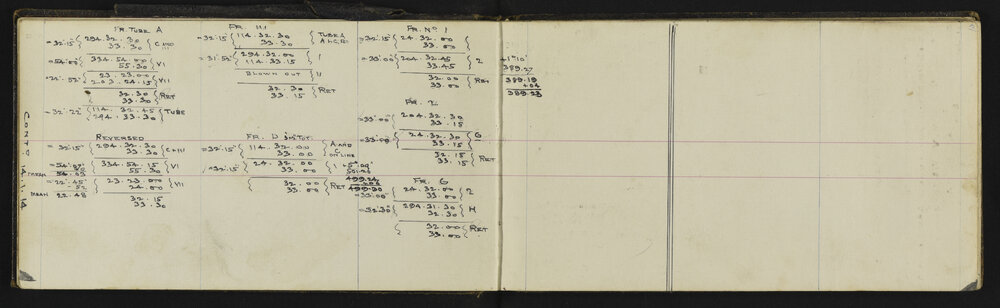 FR. TUBE A
= 32.15" { 294.32.30 } C AND
33.30
= 54.00 { 334.54.00 } VI
55.30
23.23.00 } VII
203.24.15
32.30 { RET
33.30
= 32.22" { 114.32.45 { TUBE
294.33.30
REVERSED
= 32.15" { 294.32.30
33.30
334.54.15 } VI
55.30
MEAN
= 22.45" { 23.23.00 } VII
24.00
MEAN 22.48
32.15
33.30
CONTD.
FR. III
= 32.15" { 114.32.30 } TUBE A
33.30
294.32.00 } I
114.33.15
BLOWN OUT } II
32.30 { RET
33.15
FR. D INSTD.
= 32.15" { 114.32.00 } A AND
33.00 ON LINE
32.15 { 24.32.00
33.00
32.00 { RET
33.00
FR. No 1
= 32.15" { 24.32.00
33.00
= 33.00" { 204.32.45 } 2
33.45
32.00 { RET
33.00
FR. 2
= 33.00" 204.32.30
33.15
24.32.30 } G
33.15
32.15 { RET
33.15
FR. G
24.32.00 } 2
33.00
= 32.30" { 294.31.30 } H
32.30
32.00 { RET
33.00
+1°10'
389.27
389.19
+.04
389.23